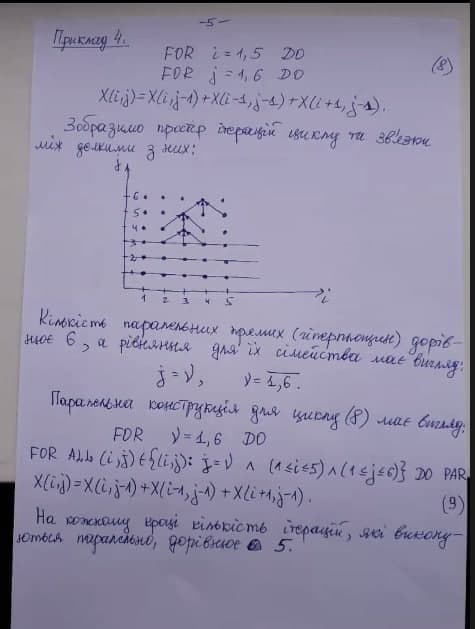 -5-
Приклад 4.
FOR i = 1, 5 DO
FOR j = 1, 6 DO (8)
X(i,j)=X(i,j-1)+X(i-1,j-1)+X(i+1,j-1).
Зобразимо простір ітерацій циклу та зв'язки
між деякими з них:
j
6
5
4
3
2
1
1 2 3 4 5 i
Кількість паралельних прямих (гіперплощин) дорів-
нює 6, а рівняння для їх сімейства має вигляд:
j = ν, ν = 1,6.
Паралельна конструкція для циклу (8) має вигляд:
FOR ν = 1,6 DO
FOR ALL (i,j) ∈ {(i,j): j=ν ∧ (1≤i≤5) ∧ (1≤j≤6)} DO PAR
X(i,j)=X(i,j-1)+X(i-1,j-1)+X(i+1,j-1). (9)
На кожному кроці кількість ітерацій, які викону-
ються паралельно, дорівнює 5.